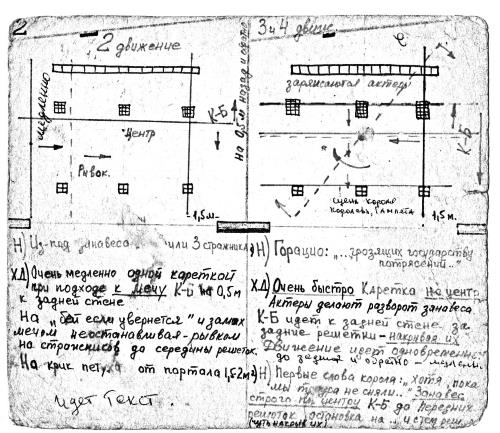 2
2 движение
медленно
К-Б
Центр
Рывок.
1,5м.
на 0,5м назад и обратно
3 и 4 движ.
заряжаются актеры
К-Б
сцена короля
королевы, Гамлета
1,5 м.
Н) Из-под занавеса или 3 стражника
ХД) Очень медленно одной кареткой
при подходе к мечу К-Б на 0,5м
к задней стене
На "бей если увернется" и замах
мечом неостанавливая - рывком
на стражников до середины решеток.
На крик петуха от портала 1,5-2м
идет Текст.
Н) Горацио: "...грозящих государству
потрясений.."
ХД) Очень быстро Каретка на центр
Актеры делают разворот занавеса
К-Б идет к задней стене за
задние решетки - накрывая их
Движение идет одновременно
до задних и обратно -
Н) Первые слова короля: хотя, пока
мы не сняли.. Занавес
строго по центру К-Б до передних
решеток, остановка на